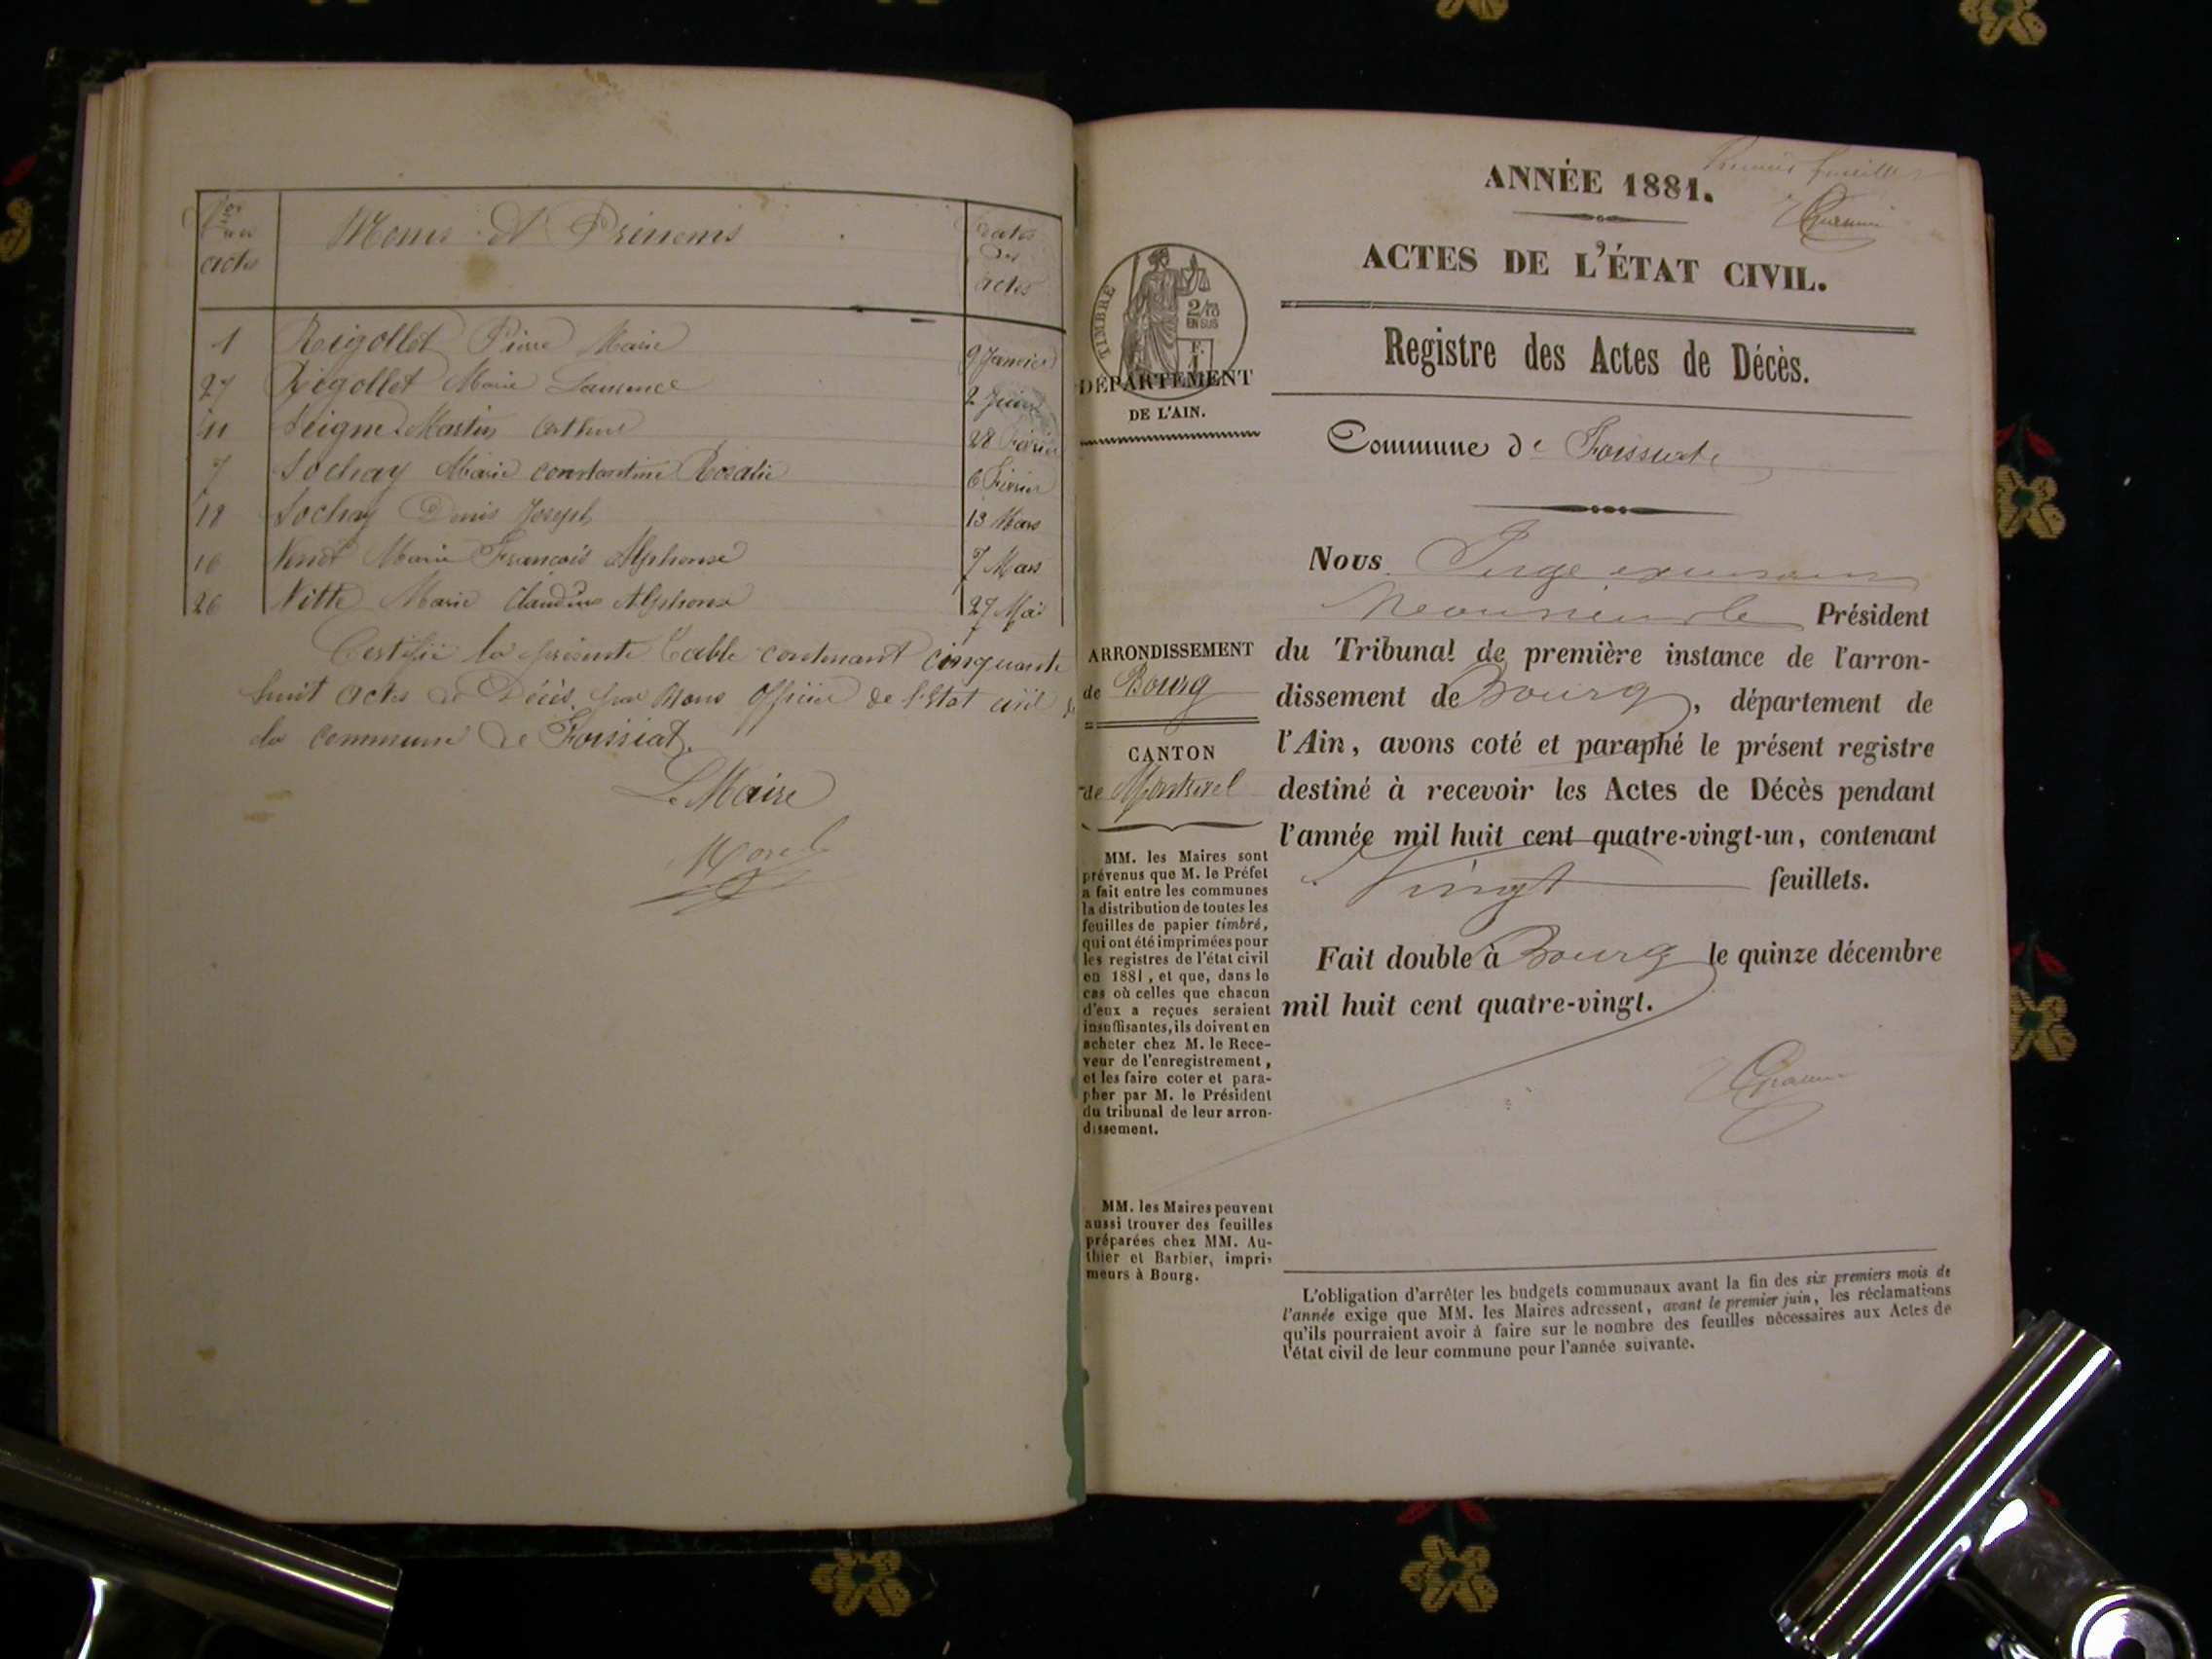 Nos des actes
Noms et Prénoms
Dates des actes
1 Rigollet Pierre Marie 9 Janvier
27 Rigollet Marie Laurence 2 Juin
11 28 Février
7 Sochay Marie constantine Rosalie 6 Février
18 Sochay Denis Joseph 13 Mars
16 Marie François Alphonse 7 Mars
26 Vitte Marie Claudius Alphonse 27 Mai
Certifié la présente Table contenant cinquante
huit actes de Décès par Nous Officier de l'Etat civil de
la commune de Foissiat.
Le Maire
Morel
Premier feuillet
ANNÉE 1881.
ACTES DE L'ÉTAT CIVIL.
Registre des Actes de Décès.
TIMBRE
2/10
EN SUS
F.
1
DÉPARTEMENT
DE L'AIN.
Commune de Foissiat
Nous Juge
Président
ARRONDISSEMENT
de Bourg
CANTON
de Montrevel
du Tribunal de première instance de l'arron-
dissement de Bourg, département de
l'Ain, avons coté et paraphé le présent registre
destiné à recevoir les Actes de Décès pendant
l'année mil huit cent quatre-vingt-un, contenant
Vingt feuillets.
Fait double à Bourg le quinze décembre
mil huit cent quatre-vingt.
MM. les Maires sont
prévenus que M. le Préfet
a fait entre les communes
la distribution de toutes les
feuilles de papier timbré,
qui ont été imprimées pour
les registres de l'état civil
en 1881, et que, dans le
cas où celles que chacun
d'eux a reçues seraient
insuffisantes, ils doivent en
acheter chez M. le Rece-
veur de l'enregistrement,
et les faire coter et para-
pher par M. le Président
du tribunal de leur arron-
dissement.
MM. les Maires peuvent
aussi trouver des feuilles
préparées chez MM. Au-
thier et Barbier, impri-
meurs à Bourg.
L'obligation d'arrêter les budgets communaux avant la fin des six premiers mois de
l'année exige que MM. les Maires adressent, avant le premier juin, les réclamations
qu'ils pourraient avoir à faire sur le nombre des feuilles nécessaires aux Actes de
l'état civil de leur commune pour l'année suivante.